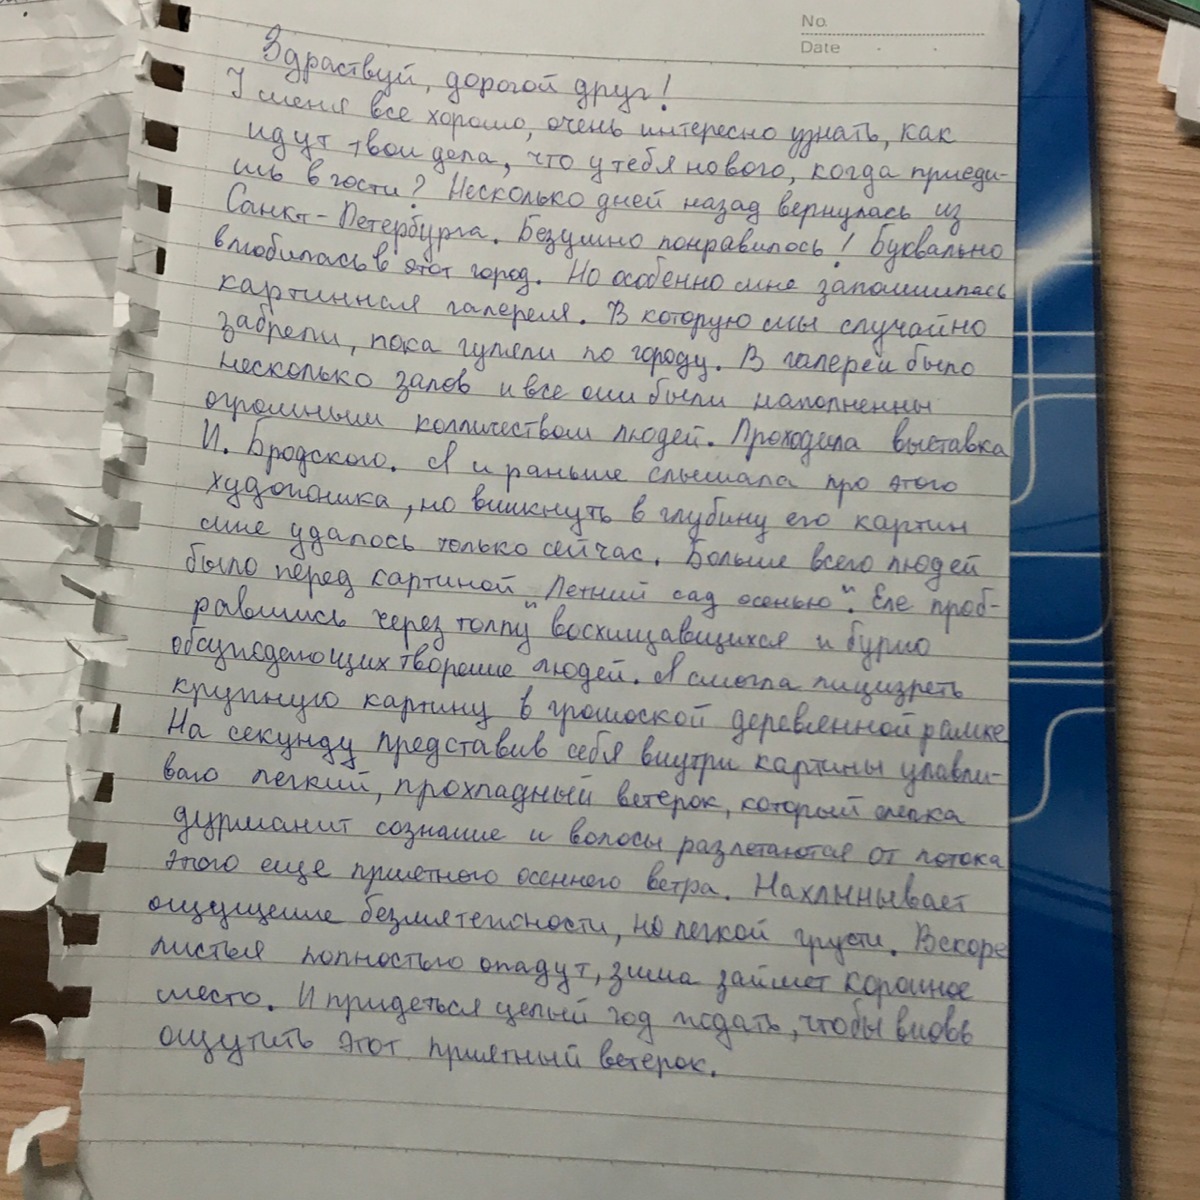 No.
Date
Здраствуй, дорогой друг!
У меня все хорошо, очень интересно узнать, как
идут твои дела, что у тебя нового, когда приеди-
шь в гости? Несколько дней назад вернулась из
Санкт-Петербурга. Безумно понравилось! Буквально
влюбилась в этот город. Но особенно мне запомнилась
картинная галерея. В которую мы случайно
забрели, пока гуляли по городу. В галереи было
несколько залов и все они были наполненны
огромным колличеством людей. Проходила выставка
И. Бродского. Я и раньше слышала про этого
художника, но вникнуть в глубину его картин
мне удалось только сейчас. Больше всего людей
было перед картиной „Летний сад осенью“. Еле проб-
равшись через толпу восхищавщихся и бурно
обсуждающих творение людей. Я смогла лицизреть
крупную картину в громоской деревянной рамке
На секунду представив себя внутри картины улавли-
ваю легкий, прохладный ветерок, который слегка
дурманит сознание и волосы разлетаются от потока
этого еще приятного осеннего ветра. Нахлынывает
ощущение безмятежности, но легкой грусти. Вскоре
листья полностью опадут, зима займет коронное
место. И придеться целый год ждать, чтобы вновь
ощутить этот приятный ветерок.